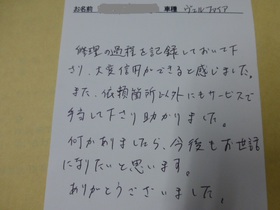 お名前 車種 ヴェルファイア
修理の過程を記録しておいて下
さり、大変信用ができると感じました。
また、依頼箇所以外にもサービスで
手して下さり助かりました。
何かありましたら、今後もお世話
になりたいと思います。
ありがとうございました。